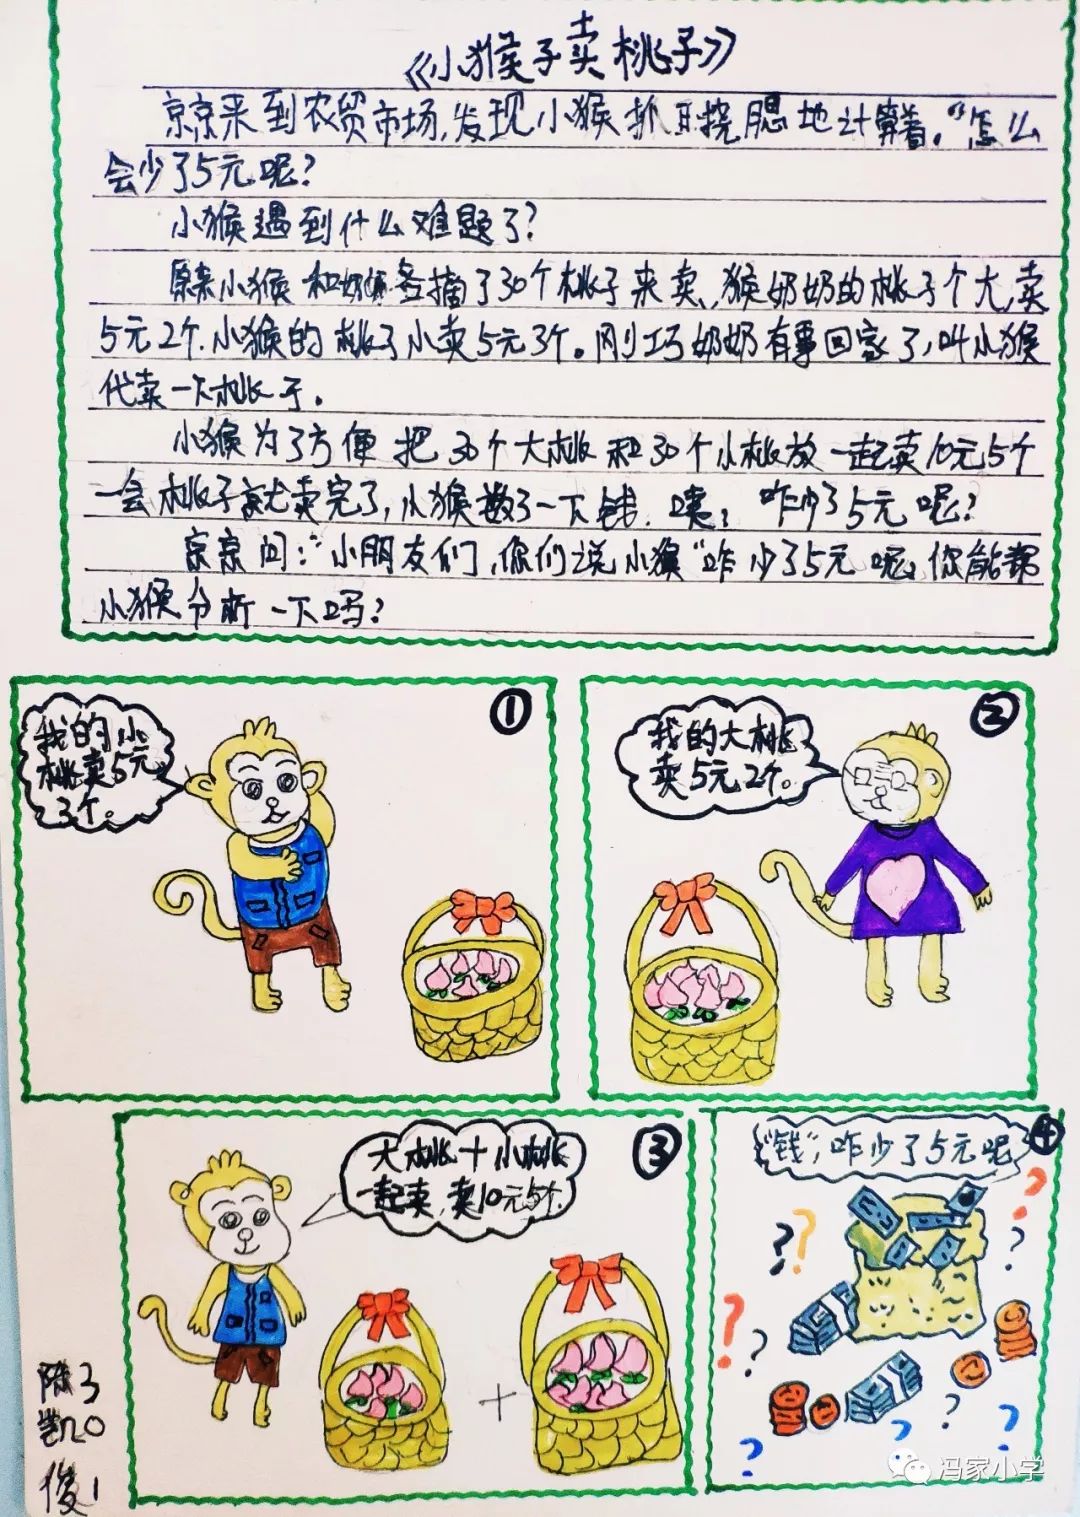 《小猴子卖桃子》
京京来到农贸市场,发现小猴抓耳挠腮地计算着。"怎么
会少了5元呢?
小猴遇到什么难题了?
原来小猴和奶奶各摘了30个桃子来卖、猴奶奶的桃子个大,卖
5元2个.小猴的桃子小卖5元3个。刚巧奶奶有事回家了,叫小猴
代卖一下桃子.
小猴为了方便把30个大桃和30个小桃放一起卖10元5个
一会桃子就卖完了,小猴数了一下钱.咦,咋少了5元呢?
京京问:"小朋友们,你们说小猴"咋少了5元呢,你能帮
小猴分析一下吗?
①
我的小
桃卖5元
3个。
②
我的大桃
卖5元2个。
③
大桃+小桃
一起卖,卖10元5个.
+
④
"钱",咋少了5元呢
陈3
凯0
俊1
冯家小学